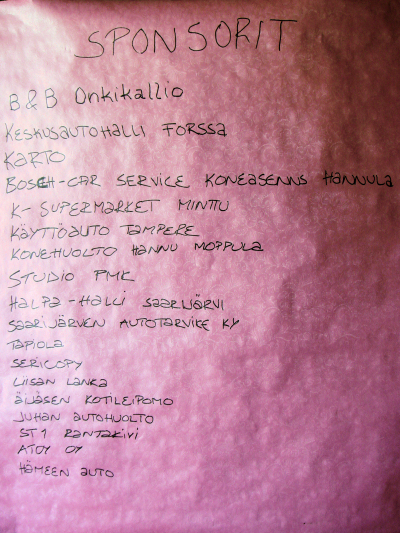 SPONSORIT
B&B Onkikallio
KESKUSAUTOHALLI FORSSA
KARTO
BOSCH-CAR SERVICE KONEASENNUS HANNULA
K-SUPERMARKET MINTTU
KÄYTTÖAUTO TAMPERE
KONEHUOLTO HANNU MOPPULA
STUDIO PMK
HALPA-HALLI SAARIJÄRVI
SAARIJÄRVEN AUTOTARVIKE KY
TAPIOLA
SERICOPY
LIISAN LANKA
ÄIJÄSEN KOTILEIPOMO
JUHAN AUTOHUOLTO
ST1 RANTAKIVI
ATOY OY
HÄMEEN AUTO